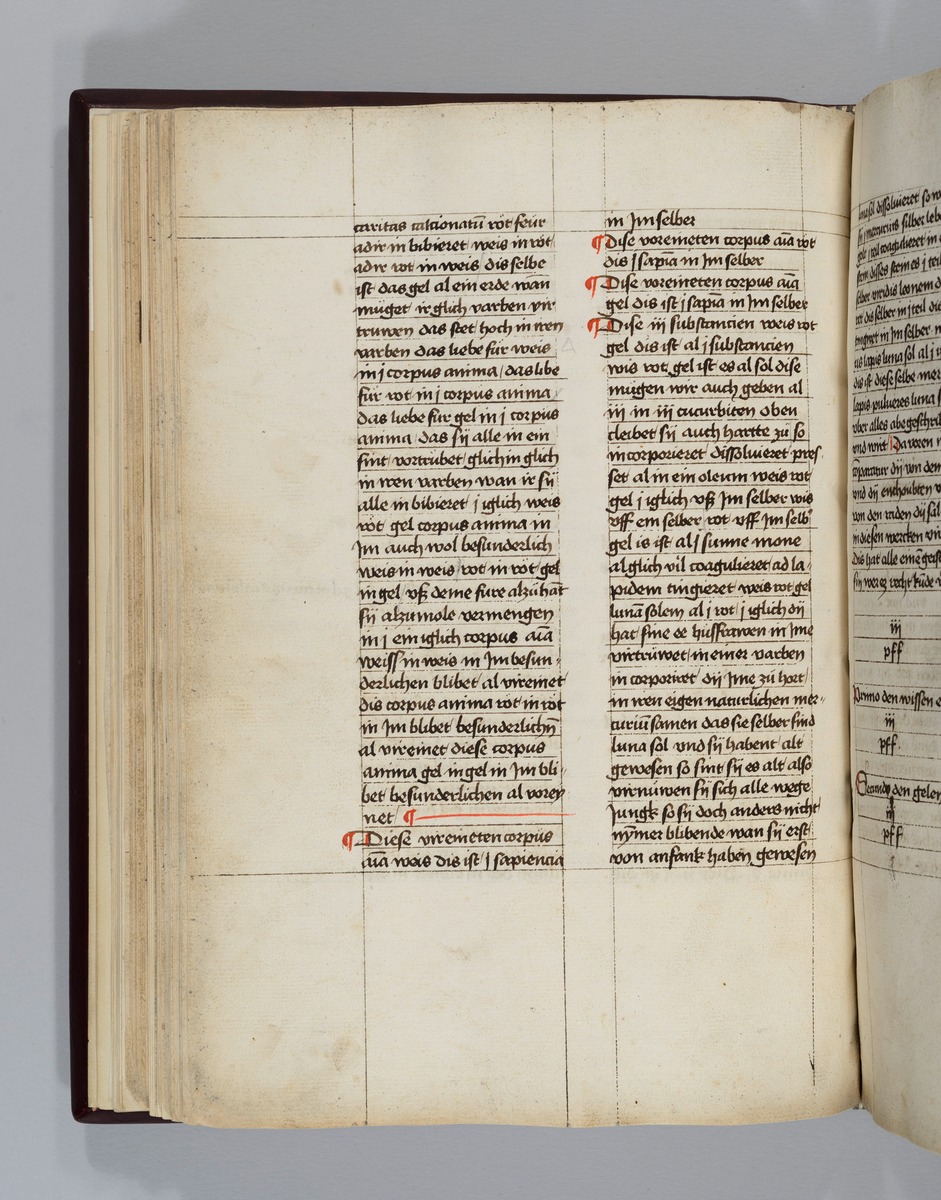 caritas calcionatū rōt feur
adir in bibieret weis in rōt
adir rot in weis dis selbe
ist das gel al ein erde wan
müget ir glich varben vir
truwen das stet hoch in iren
varben das liebe für weis
in j corpus anima / das libe
für rot in j corpus anima
das liebe für gel in j corpus
anima das sÿ alle in ein
sint vortrübet / glich in glich
in iren varben wan ir sÿ
alle in bibieret j iglich weis
rōt gel corpus anima in
Jm auch wol besunderlich
weis in weis rot in rōt gel
in gel vß deme fure alzū hāt
sÿ alzumole vermengen
in j ein iglich corpus aīa
weiss in weis in Jm besun
derlichen blibet al vireinet
dis corpus anima rōt in rōt
in Jm blibet besunderlichn̄
al vireinet diese corpus
anima gel in gel in Jm bli
bet besunderlichen al vorey
net ¶
¶ Diese vireineten corpus
aīa weis dis ist j sapiencia
in Jm selber
¶ Dise voreineten corpus aīa rot
dis j sapīa in Jm selber
¶ Dise voreineten corpus aīa
gel dis ist j sapīa in Jm selber
¶ Dise iij substancien weis rot
gel dis ist al j substancien
wis rot gel ist es al sol dise
mügen wir auch geben al
iij in iij cucurbiten oben
cleibet sÿ auch hartte zū so
incorporieret dissoluieret pres
set al in ein oleum weis rot
gel j iglich vß Jm selber wis
vff em selber rot vff Jm selb
gel is ist al j sunne mone
al glich vil coagulieret ad la
pidem tingieret weis rot gel
lunā solem al j rot j iglich dÿ
hat sine ee hussfrawen in Jme
virtruwet in einer varben
in corporiret dÿ Jme zū hort
in iren eigen naturlichen mer
curiū samen das sie selber sind
luna sol vnd sÿ habent alt
gewesen so sint sÿ es alt also
virnuwen sÿ sich alle wege
Jungk so sÿ doch anders nicht
nÿmer blibende wan sÿ erst
von anfank haben gewesen
iij
pff
iij
pff.
iij
pff